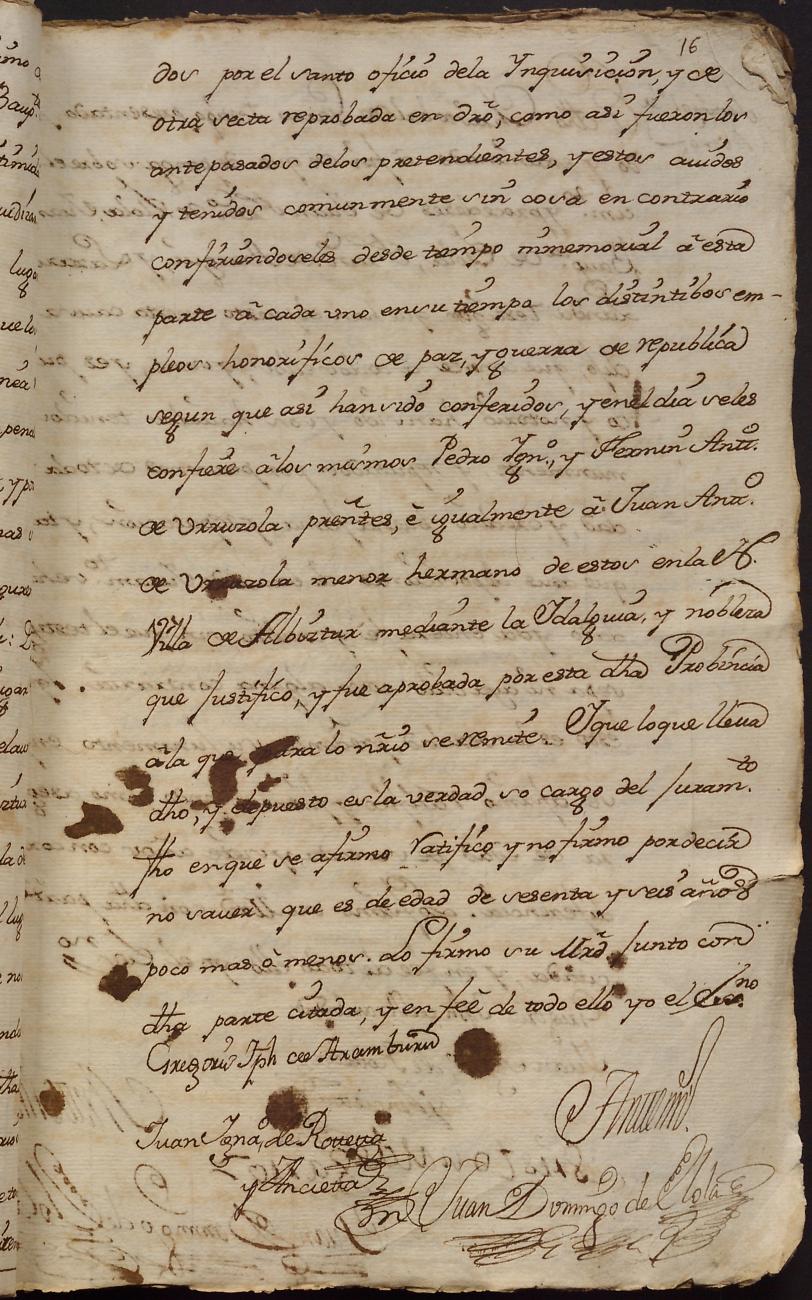 16
dos por el santo oficio dela Ynquisicion, y de
otra secta reprobada en dró, como asi fueron los
antepasados delos pretendientes, y estos auidos
y tenidos comunmente sin cosa en contrario
confiriendoseles desde tiempo inmemorial a esta
parte à cada uno en su tiempo los distintibos em-
pleos honorificos de paz, y guerra de republica
segun que asi han sido conferidos, y en el dia seles
confiere à los mismos Pedro Ygnº, y Fermin Antº.
de Urruzola preñtes, è igualmente à Juan Antº.
de Urruzola menor hermano de estos en la N.
Villa de Albiztur mediante la Ydalguia, y nobleza
que Justificó, y fue aprobada por esta dha Probincia
ala que para lo nrio se remite. Yque loque lleua
dho, y depuesto es la verdad so cargo del Juramto.
fho en que se afirmo Ratifico y no firmo por decir
no sauer que es de edad de sesenta y seis años
poco mas ò menos. Lo firmo su Mrd Junto con
dha parte citada, y en feè de todo ello yo el Essno.
Gregorio Jph de Aramburu
Juan Ygnaº de Roueta
y Ancieta
Antemi
Juan Domingo de Elola